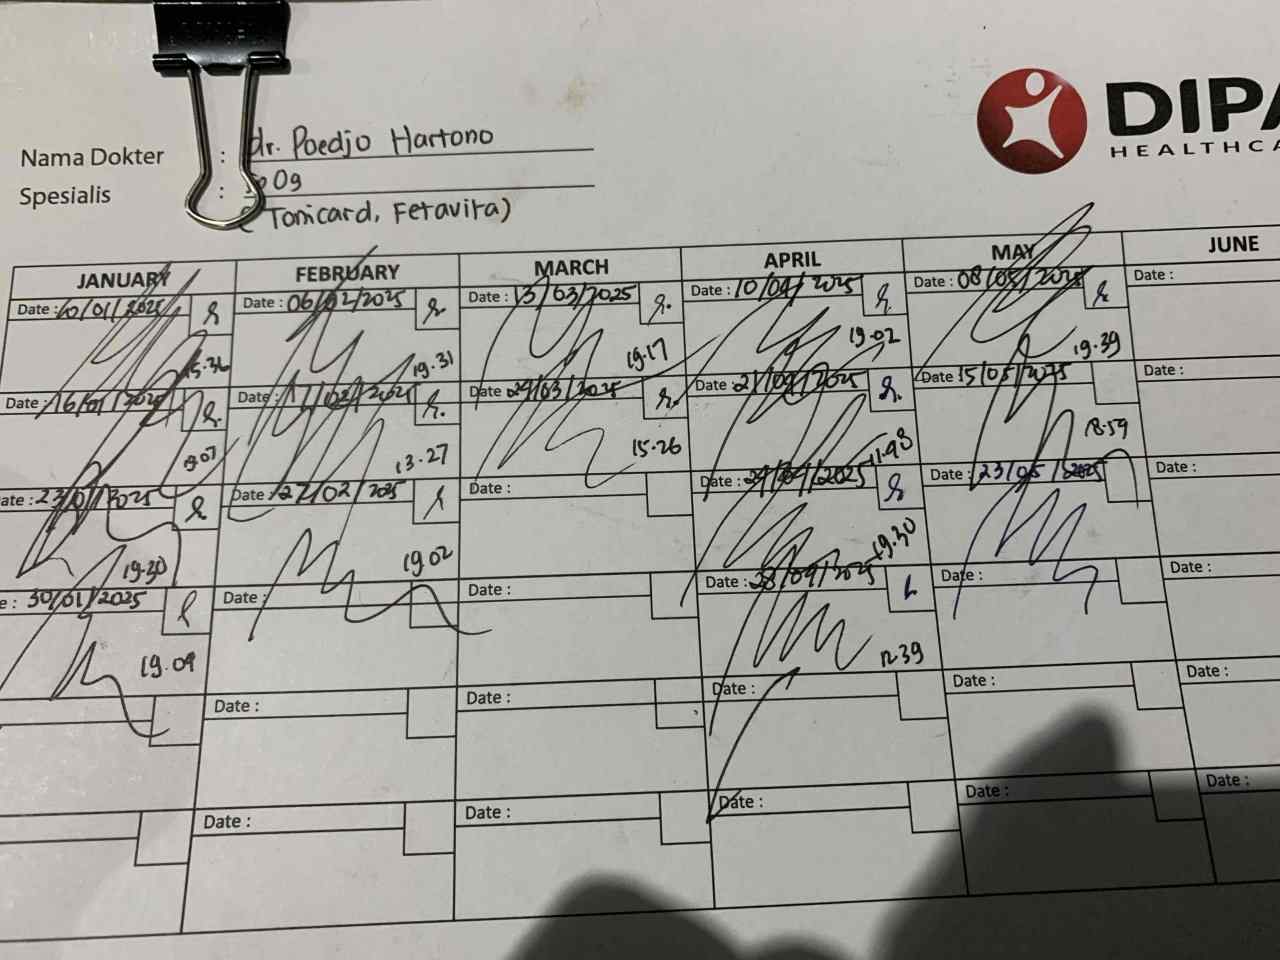 DIPA
HEALTHCA
Nama Dokter : dr. Poedjo Hartono
Spesialis : Og
(Tonicard, Feravita)
JANUARY FEBRUARY MARCH APRIL MAY JUNE
Date : 10/01/2025 Date : 06/02/2025 Date : 13/03/2025 Date : 10/04/2025 Date : 08/05/2025 Date :
15.36 19.31 19.17 19.02 19.39
Date : 16/01/2025 Date : 17/02/2025 Date : 24/03/2025 Date : 21/04/2025 Date : 15/05/2025 Date :
13.27 15.26 11.48 18.59
ate : 23/01/2025 Date : 27/02/2025 Date : Date : 24/04/2025 Date : 23/05/2025 Date :
19.30 19.02 19.30
e : 30/01/2025 Date : Date : Date : 28/04/2025 Date : Date :
19.09 12.39
Date : Date : Date : Date : Date :
Date : Date : Date : Date : Date :